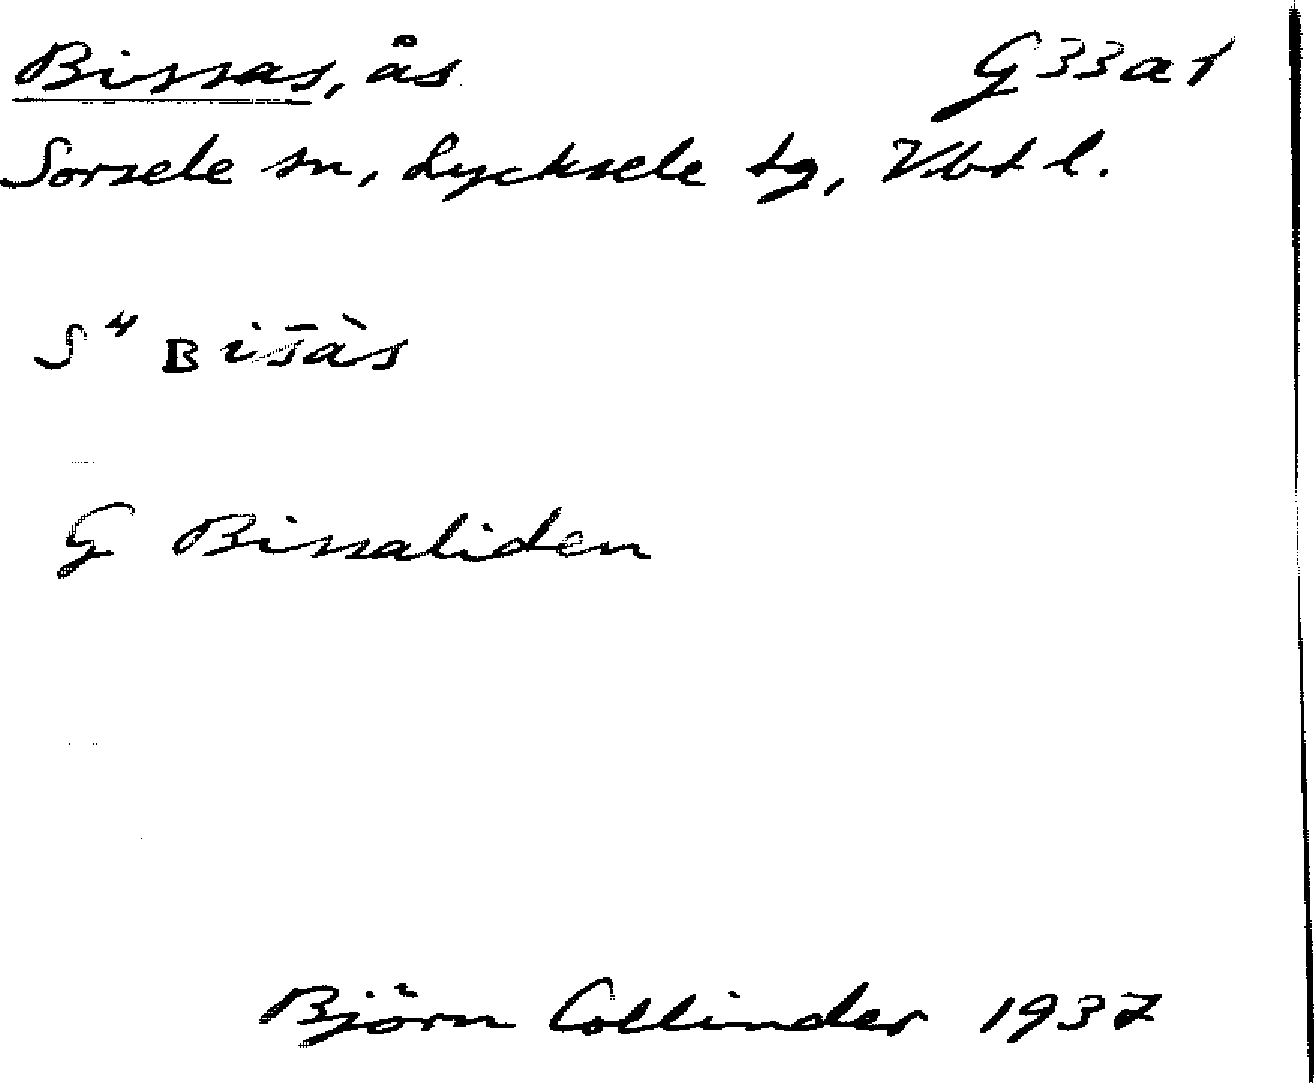 Bissas, ås G 33 a 1
Sorsele sn, Lycksele tg, Vbt l.
S⁴ ʙis̄às
G Bissaliden
Björn Collinder 1937